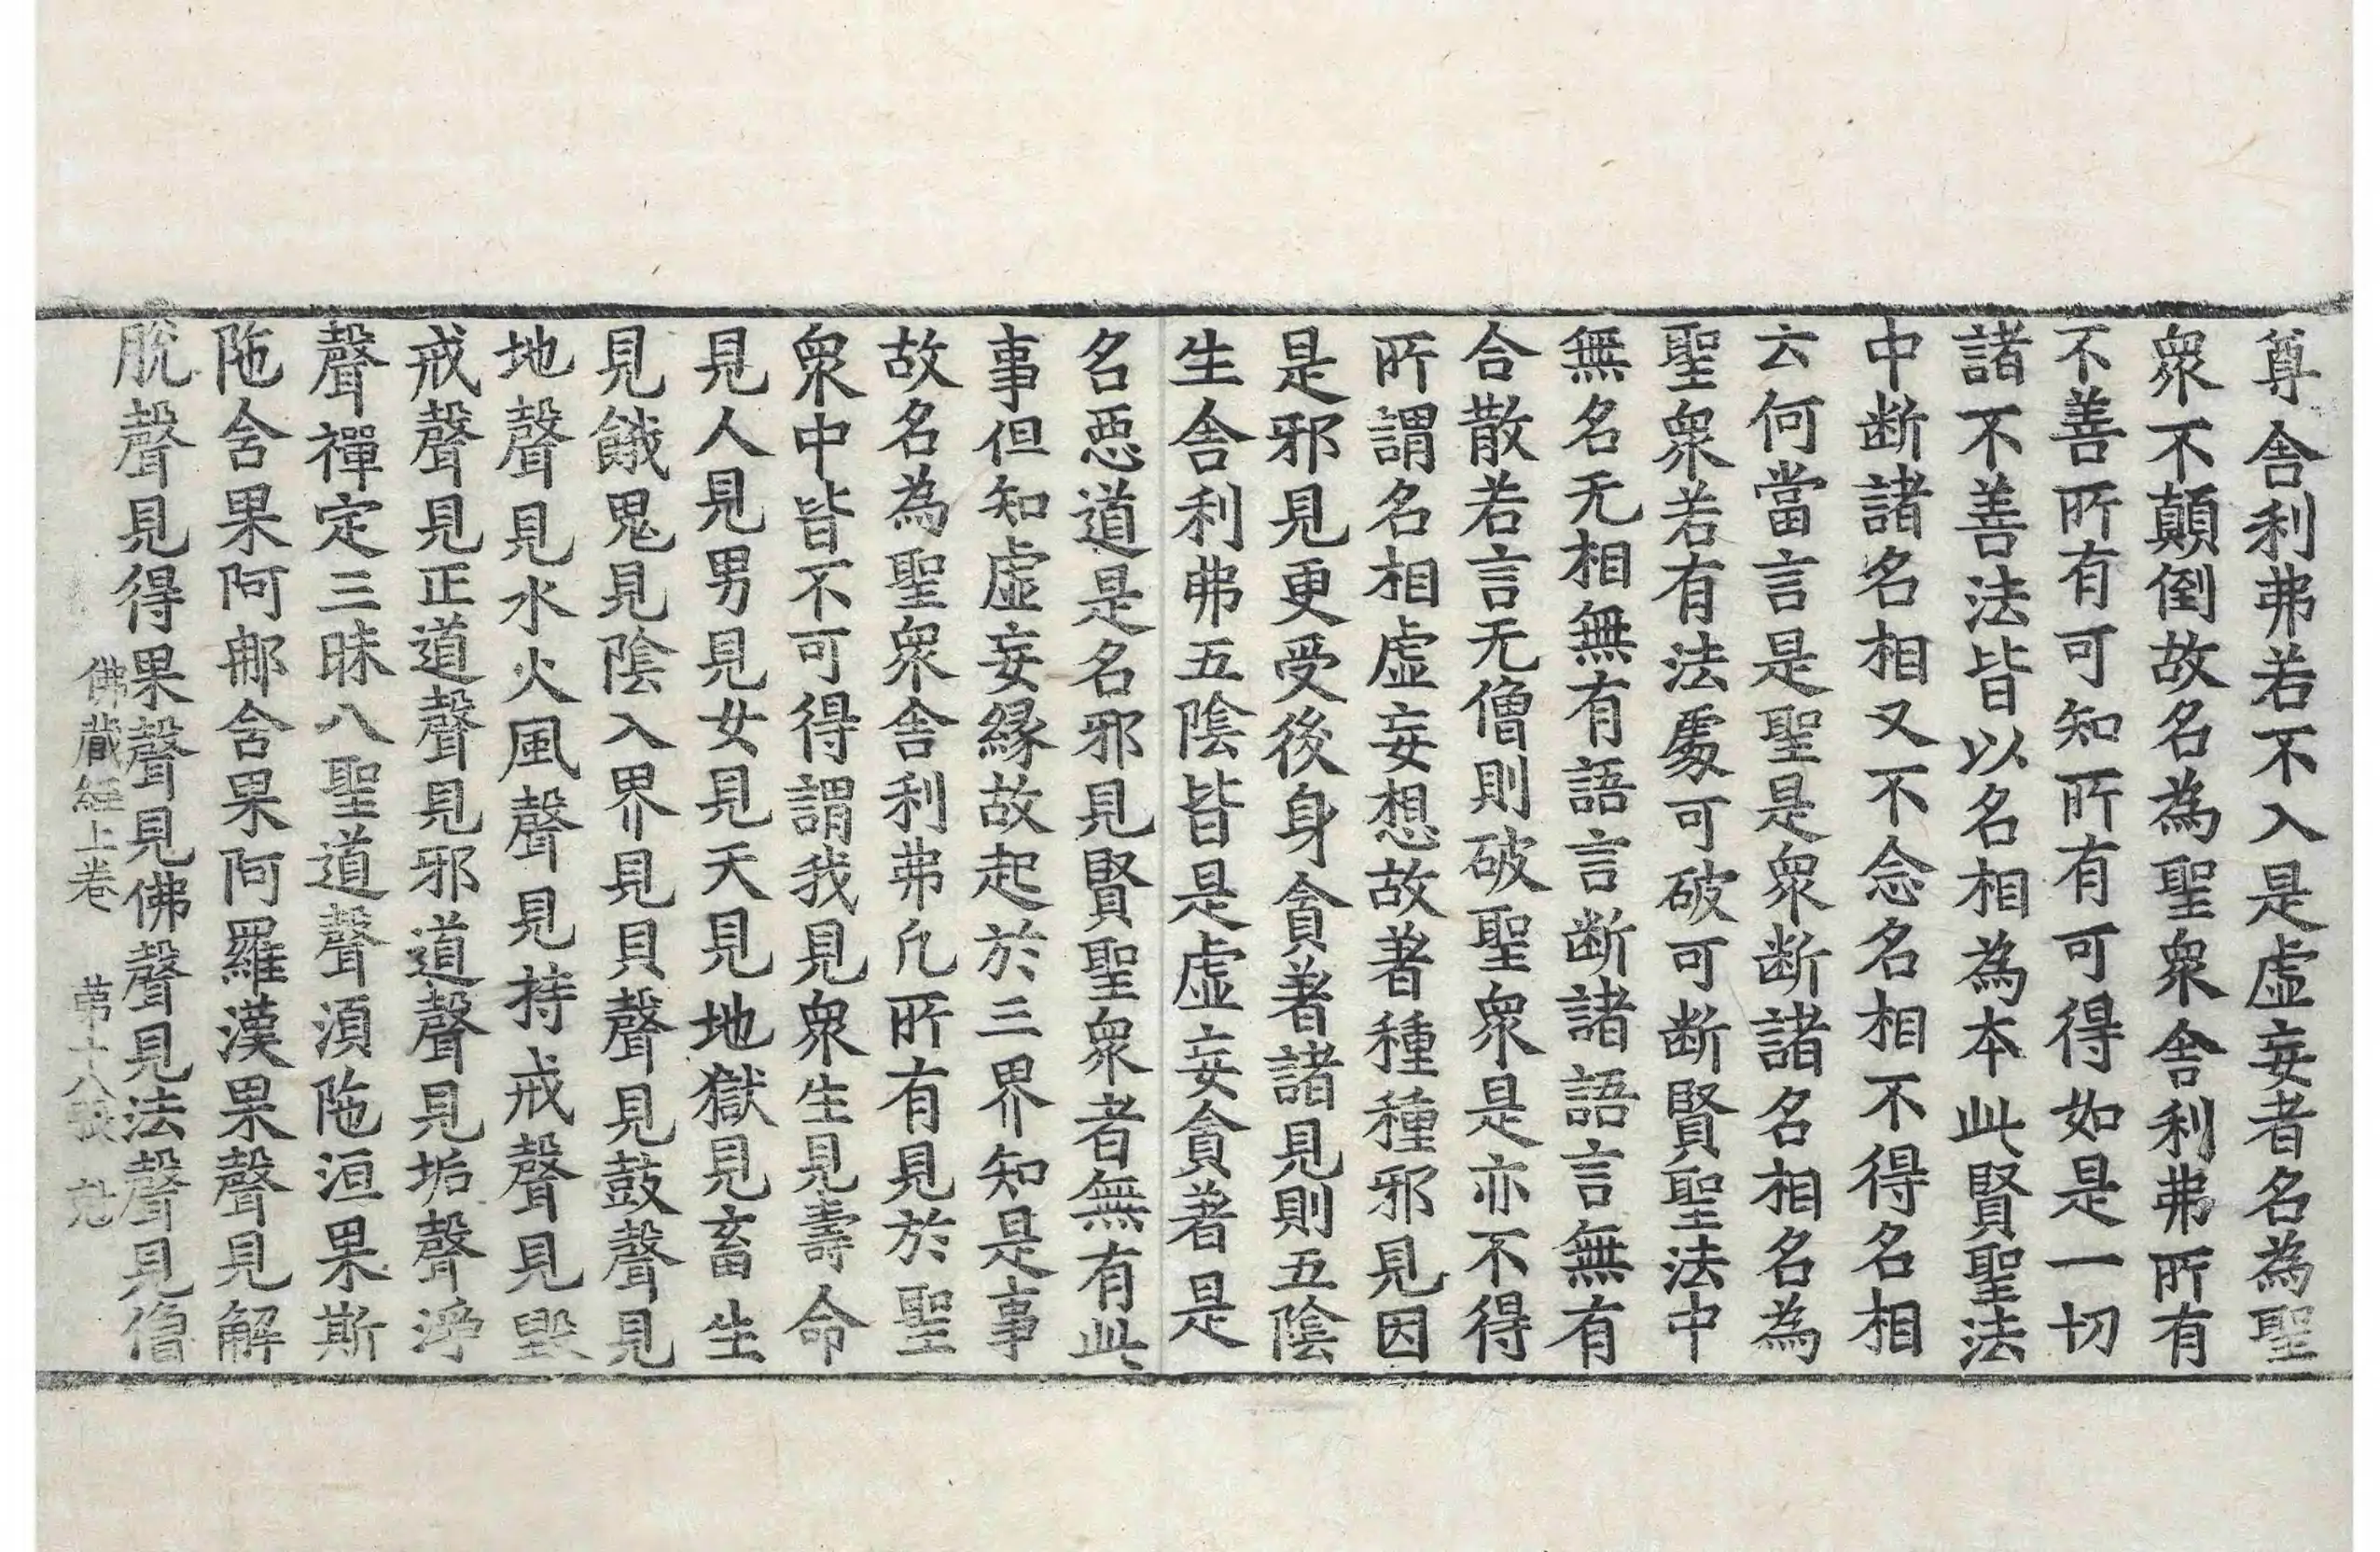 尊舍利弗若不入是虛妄者名為聖
衆不顛倒故名為聖衆舍利弗所有
不善所有可知所有可得如是一切
諸不善法皆以名相為本此賢聖法
中断諸名相又不念名相不得名相
云何當言是聖是衆断諸名相名為
聖衆若有法處可破可断賢聖法中
無名无相無有語言断諸語言無有
合散若言无僧則破聖衆是亦不得
所謂名相虛妄想故著種種邪見因
是邪見更受後身貪著諸見則五陰
生舍利弗五陰皆是虛妄貪著是
名惡道是名邪見賢聖衆者無有此
事但知虛妄緣故起於三界知是事
故名為聖衆舍利弗凡所有見於聖
衆中皆不可得謂我見衆生見壽命
見人見男見女見天見地獄見畜生
見餓鬼見陰入界見貝聲見鼓聲見
地聲見水火風聲見持戒聲見毀
戒聲見正道聲見邪道聲見垢聲淨
聲禪定三昧八聖道聲須陁洹果斯
陁舍果阿那舍果阿羅漢果聲見解
脫聲見得果聲見佛聲見法聲見僧
佛藏經上卷 第十八張